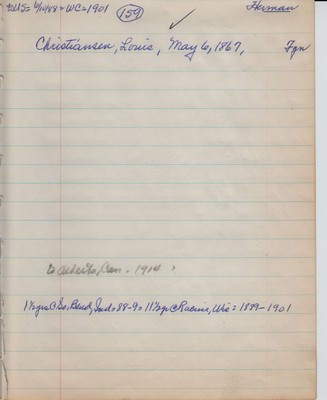 EUS= 6/10/88 = WC=1901
159
Herman
Christiansen, Louis, May 6, 1867, Fgn
to Alberta, Can. 1914
1½yrs C So. Bend, Ind. 88-9= 11½yr C Racine, Wis= 1889-1901